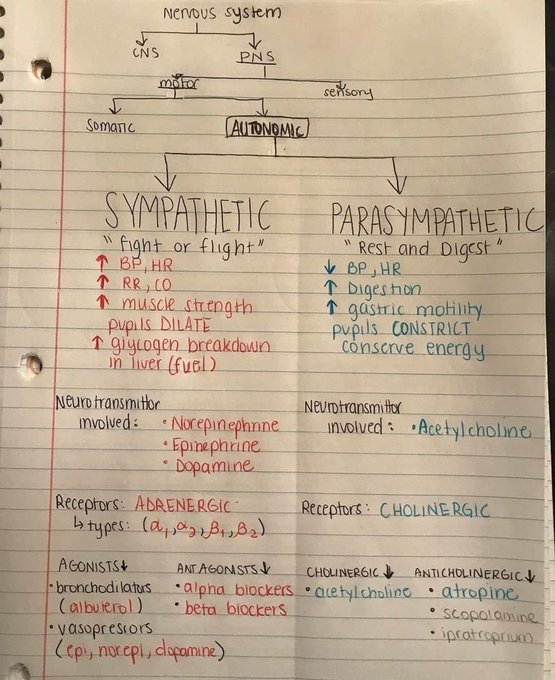 Nervous system
CNS
PNS
motor
sensory
Somatic
AUTONOMIC
SYMPATHETIC
"fight or flight"
↑ BP, HR
↑ RR, CO
↑ muscle strength
pupils DILATE
↑ glycogen breakdown
in liver (fuel)
PARASYMPATHETIC
"Rest and Digest"
↓ BP, HR
↑ Digestion
↑ gastric motility
pupils CONSTRICT
conserve energy
Neurotransmittor
involved: • Norepinephrine
• Epinephrine
• Dopamine
Neurotransmittor
involved: • Acetylcholine
Receptors: ADRENERGIC
↳ types: (α1, α2, β1, β2)
Receptors: CHOLINERGIC
AGONISTS↓
• bronchodilators
(albuterol)
• vasopressors
(epi, norepi, dopamine)
ANTAGONISTS↓
• alpha blockers
• beta blockers
CHOLINERGIC↓
• acetylcholine
ANTICHOLINERGIC↓
• atropine
• scopolamine
• ipratroprium